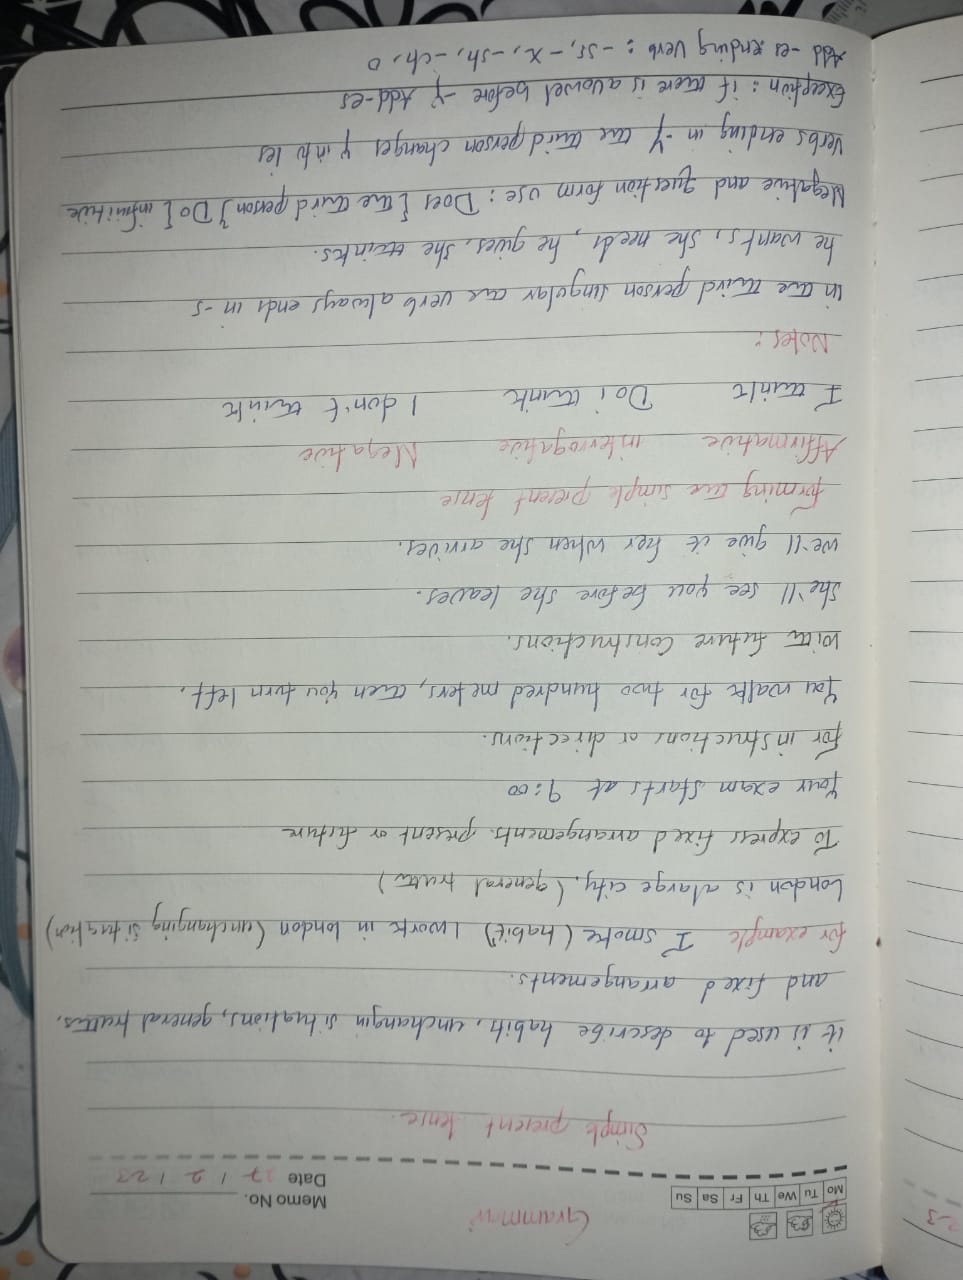 Grammar
Mo Tu We Th Fr Sa Su
Memo No.
Date 27 / 2 / 23
Simple present tense.
it is used to describe habits, unchangin situations, general truths,
and fixed arrangements.
for example I smoke (habit) I work in london (unchanging situation)
London is a large city. (general truth)
To express fixed arrangements. present or future
Your exam starts at 9:00
for instructions or directions.
You walk for two hundred meters, then you turn left.
with future constructions.
She'll see you before she leaves.
we'll give it her when she arrives.
forming the simple present tense
Affirmative interrogative Negative
I think Do i think I don't think
Notes:
in the third person singular the verb always ends in -s
he wants, she needs, he gives, she thinks.
Negative and Question form use: Does [the third person] Do [infinitive
Verbs ending in -y the third person changes y into ies
Exception: if there is a vowel before -y Add-es
Add -es ending verb: -ss, -x, -sh, -ch, o